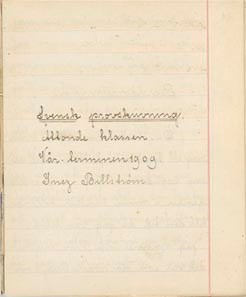 Svensk provskrivning.
Åttonde klassen
Vår-terminen 1909
Inez Billström